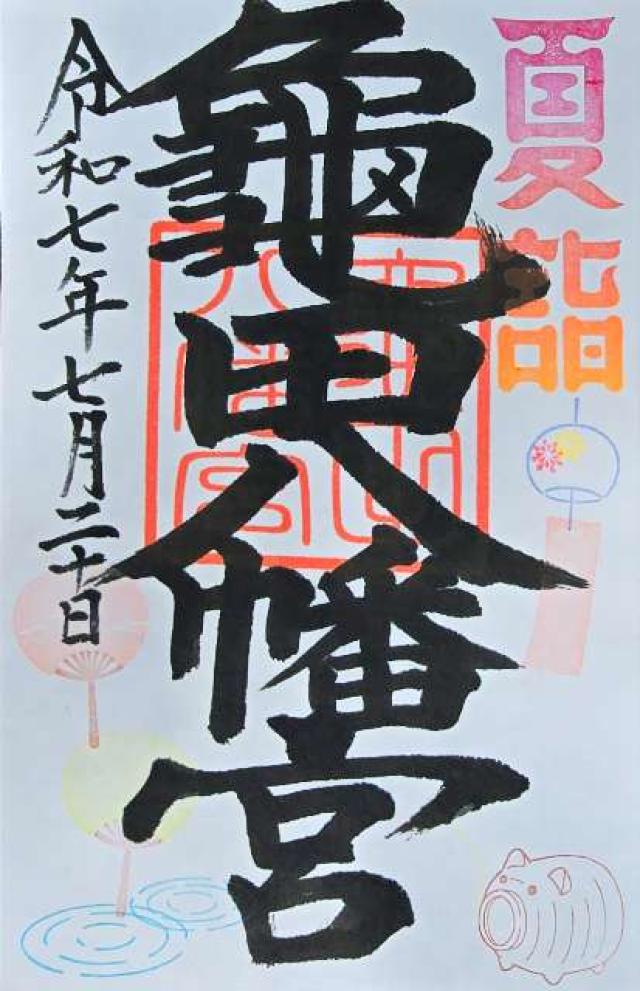 夏詣
龜田八幡宮
令和七年七月二十日